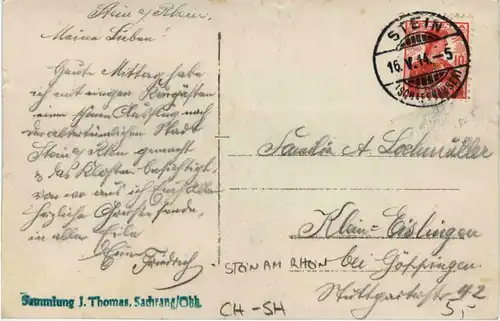 Stein a/Rhein.
Meine Lieben!
Heute Mittag habe
ich mit einigen Kurgästen
einen schönen Ausflug nach
der altertümlichen Stadt
Stein a/Rhein gemacht
& das Kloster besichtigt,
von wo aus ich Euch Allen
herzliche Grüsse sende,
in aller Eile
Euer Friedrich
Sammlung J. Thomas, Sachrang/Obb.
STEIN
16.V.14.-5
(SCHAFFHAUSEN)
10
Familie A. Lochmüller
Klein-Eislingen
bei Göppingen
Stuttgarterstr. 42
STEIN AM RHEIN
CH-SH
5,-